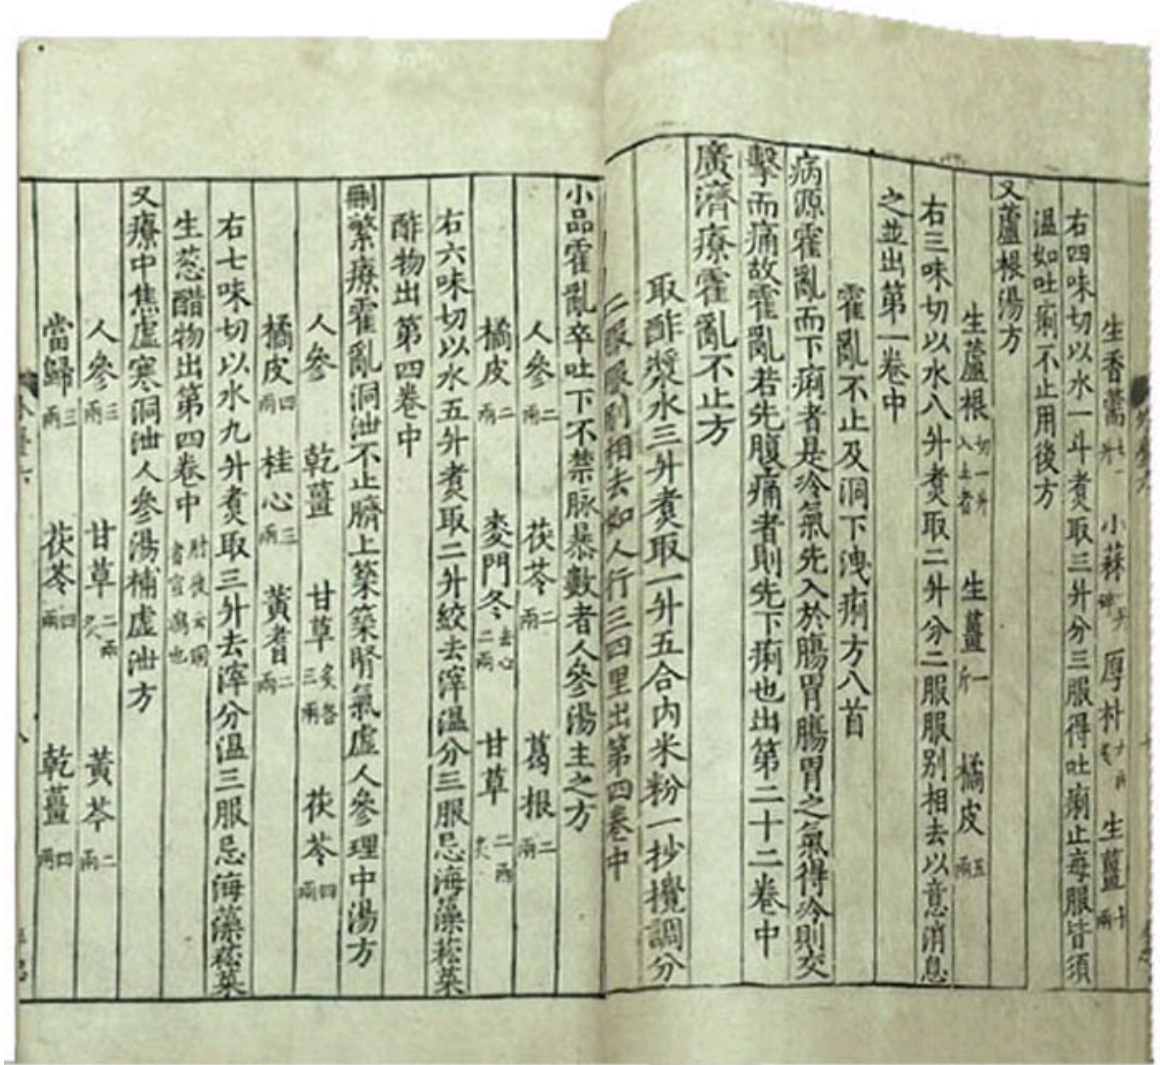 生香薷 小蒜 厚朴 生薑
右四味切以水一斗煑取三升分三服得吐痢止每服皆須
溫如吐痢不止用後方
又蘆根湯方
生蘆根切一升入土者 生薑一斤 橘皮五兩
右三味切以水八升煑取二升分二服服別相去以意消息
之並出第一卷中
霍亂不止及洞下洩痢方八首
病源霍亂而下痢者是冷氣先入於腸胃腸胃之氣得冷則交
擊而痛故霍亂若先腹痛者則先下痢也出第二十二卷中
廣濟療霍亂不止方
取酢漿水三升煑取一升五合內米粉一抄攪調分
二服服別相去如人行三四里出第四卷中
小品霍亂卒吐下不禁脉暴數者人參湯主之方
人參二兩 茯苓二兩 葛根二兩
橘皮二兩 麥門冬去心二兩 甘草二兩炙
右六味切以水五升煑取二升絞去滓溫分三服忌海藻菘菜
酢物出第四卷中
刪繁療霍亂洞泄不止臍上築築腎氣虛人參理中湯方
人參 乾薑 甘草炙各三兩 茯苓四兩
橘皮四兩 桂心三兩 黃耆二兩
右七味切以水九升煑取三升去滓分溫三服忌海藻菘菜
生葱醋物出第四卷中
又療中焦虛寒洞泄人參湯補虛泄方
人參三兩 甘草二兩炙 黃芩二兩
當歸三兩 茯苓四兩 乾薑四兩